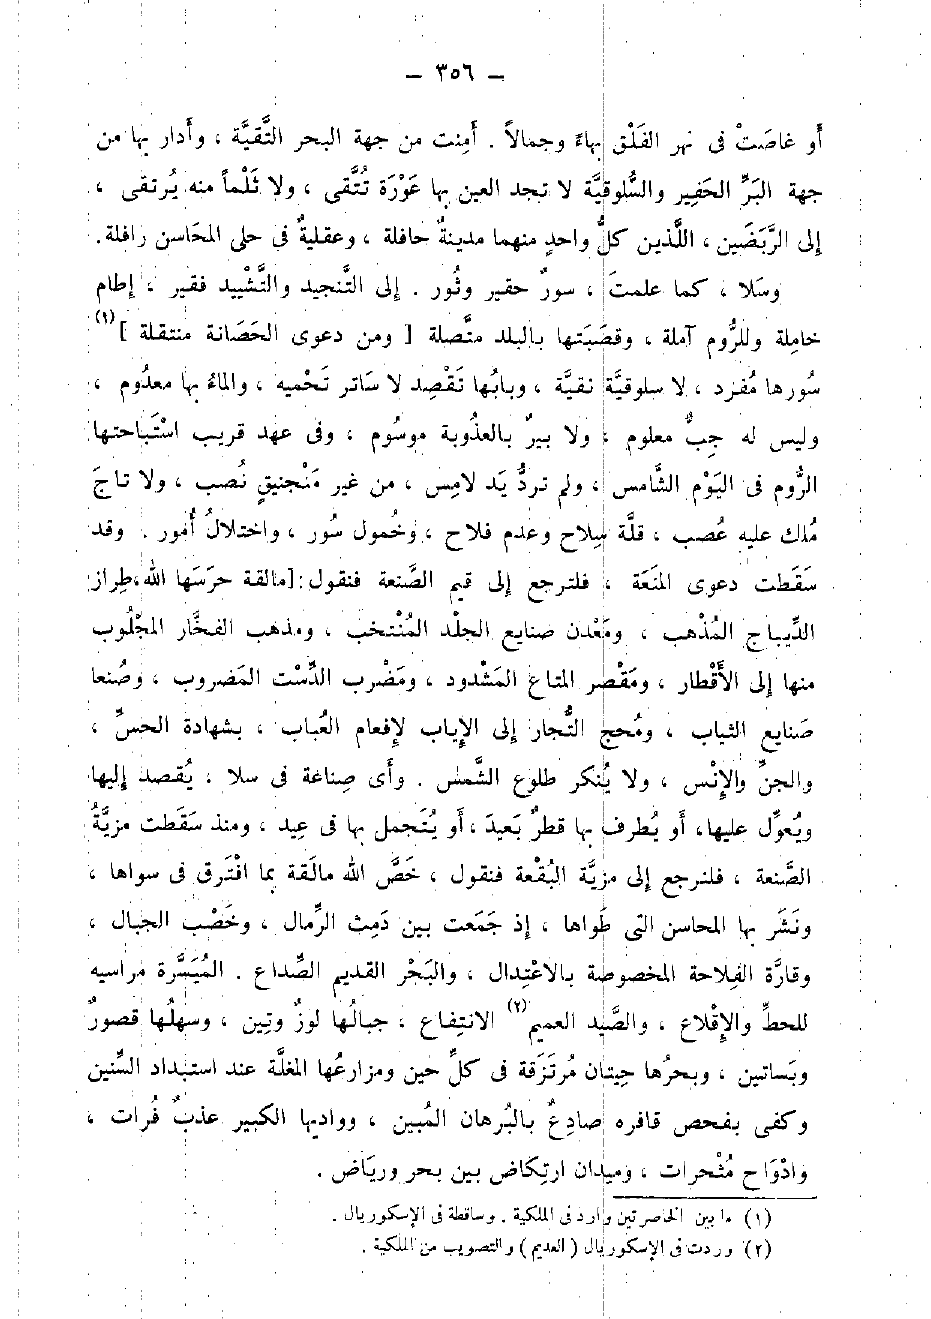 — ٣٥٦ —
أو غاصَتْ فى نهر الفَلْق بهاءً وجمالاً . أمِنت من جهة البحر التَّقيَّة ، وأدار بها من
جهة البَرِّ الحَفِير والسُّلوقيَّة لا تجد العين بها عَوْرَة تُتَّقى ، ولا ثَلْماً منه يُرتقى ،
إلى الرَّبَضَين ، اللَّذين كلُّ واحدٍ منهما مدينةٌ حافلة ، وعقليةٌ فى حلى المحَاسن رافلة .
وسَلا ، كما علمتَ ، سورٌ حقير وثُور . إلى التَّنجيد والتَّشْييد فقير ، إطام
خامِلة وللرُّوم آملة ، وقصَبَتها بالبلد متَّصلة [ ومن دعوى الحَصَانة منتقلة ](١)
سُورها مُفرَد ، لا سلوقيَّة نقيَّة ، وبابُها تَقْصِد لا سَاتر تَحْميه ، والماءُ بها معدُوم ،
وليس له جِبٌّ معلوم ، ولا بيرٌ بالعذُوبة موسُوم ، وفى عهد قريب اسْتَباحتها
الرُّوم فى اليَوْم الشَّامس ، ولم تردُّ يَد لامِس ، من غير مَنْجنيقٍ نُصب ، ولا تاجَ
مُلك عليه عُصب ، قلَّة سِلاح وعدم فلاح ، وخُمول سُور ، واختلالُ أمُور . وقد
سَقَطت دعوى المنَعَة ، فلترجع إلى قيم الصَّنعة فنقول : [مالقة حرَسَها الله ، طِراز
الدِّيباج المُذْهب ، ومَعْدن صنايع الجلْد المُنْتخب ، ومذهب الفخَّار المجْلُوب
منها إلى الأقْطار ، ومَقْصر المتاع المَشْدود ، ومَضْرب الدِّسْت المَضروب ، وصُنعا
صَنايع الثياب ، ومُحج التُّجار إلى الإياب لإفعام العُباب ، بشهادة الحسِّ ،
والجنِّ والإنْس ، ولا يُنكر طلوع الشَّمْس . وأى صِناعة فى سلا ، يُقصد إليها
ويُعوِّل عليها، أو يُطرف بها قطرٌ بَعيدَ ، أو يُتَجمل بها فى عِيد ، ومنذ سَقَطت مزيَّةُ
الصَّنعة ، فلنرجع إلى مزيَّة البُقْعة فنقول ، خَصَّ الله مالَقة بما افْتَرق فى سواها ،
ونَشَر بها المحاسن التى طَواها ، إذ جَمَعت بين دَمِث الرِّمال ، وخَصْب الجبال ،
وقارَّة الفِلاحة المخصوصة بالاعْتِدال ، والبَحْر القديم الصِّداع . المُيَسَّرة مراسيه
للحطِّ والإقْلاع ، والصَّيد العميم(٢) الانتِفاع ، جبالُها لوزٌ وتِين ، وسهلُها قصورٌ
وبَساتين ، وبحرُها حِيتان مُرتَزَقة فى كلِّ حين ومزارعُها المغلَّة عند استبداد السِّنين
وكفى بفحص قافره صادِعٌ بالبُرهان المُبين ، وواديها الكبير عذبٌ فُرات ،
وادْواح مُثْحرات ، وميدان ارتكاض بين بحر وريَاض .
(١) ما بين الحاصرتين وارد فى الملكية . وساقطة فى الإسكوريال .
(٢) وردت فى الإسكوريال ( العديم ) والتصويب من الملكية .